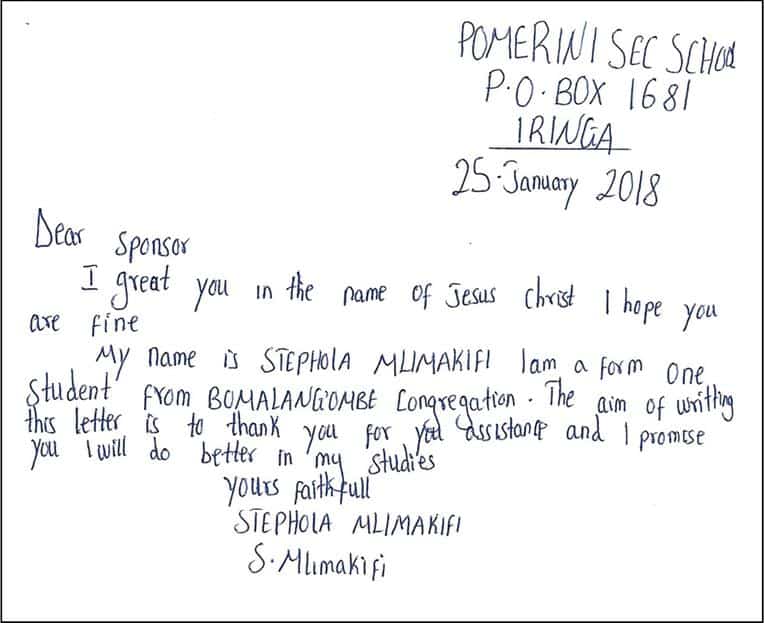 POMERINI SEC SCHOOL
P.O.BOX 1681
IRINGA
25.January 2018
Dear Sponsor
I great you in the name of Jesus Christ I hope you
are fine
My name is STEPHOLA MLIMAKIFI Iam a form one
Student from BOMALANG'OMBE Congregation. The aim of writting
this letter is to thank you for you assistance and I promise
you I will do better in my studies
yours faithfull
STEPHOLA MLIMAKIFI
S.Mlimakifi